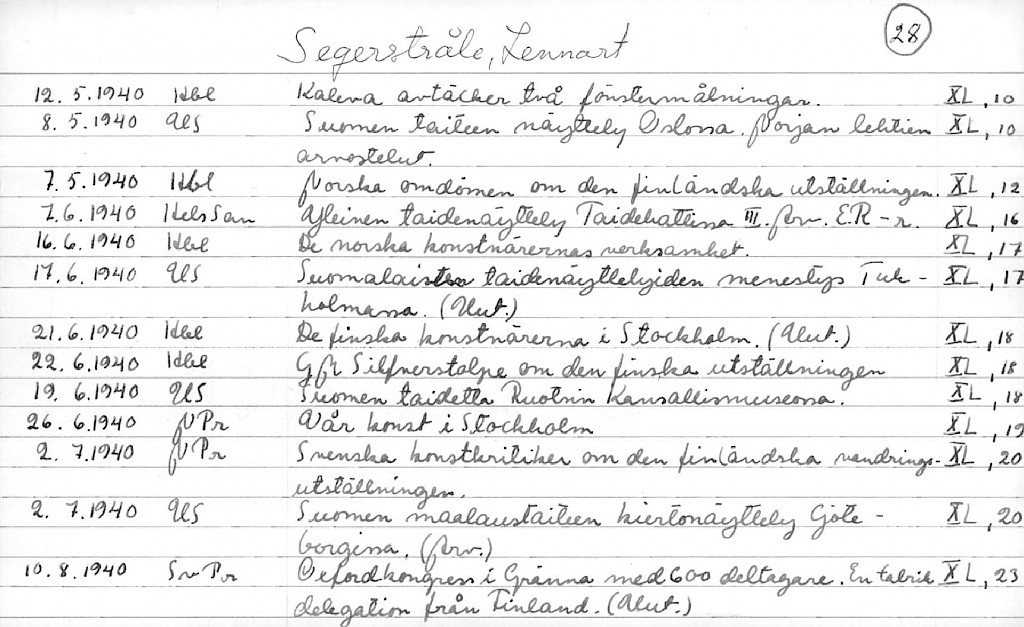 28
Segerstråle, Lennart
12.5.1940 Hbl Kaleva avtäcker två fönstermålningar. XL, 10
8.5.1940 US Suomen taiteen näyttely Oslossa. Norjan lehtien XL, 10
arvostelut.
7.5.1940 Hbl Norska omdömen om den finländska utställningen. XL, 12
7.6.1940 Hels San Yleinen taidenäyttely Taidehallissa III. Arv. E.R-r. XL, 16
16.6.1940 Hbl De norska konstnärernas verksamhet. XL, 17
17.6.1940 US Suomalaisten taidenäyttelyiden menestys Tuk- XL, 17
holmassa. (Uut.)
21.6.1940 Hbl De finska konstnärerna i Stockholm. (Uut.) XL, 18
22.6.1940 Hbl Silfverstolpe om den finska utställningen XL, 18
19.6.1940 US Suomen taidetta Ruotsin Kansallismuseossa. XL, 18
26.6.1940 NPr Vår konst i Stockholm XL, 19
2.7.1940 NPr Svenska konstkritiker om den finländska vandrings- XL, 20
utställningen.
2.7.1940 US Suomen maalaustaiteen kiertonäyttely Göte- XL, 20
borgissa. (Arv.)
10.8.1940 Sv Pr Oxfordkongress i Gränna med 600 deltagare. En talrik XL, 23
delegation från Finland. (Uut.)